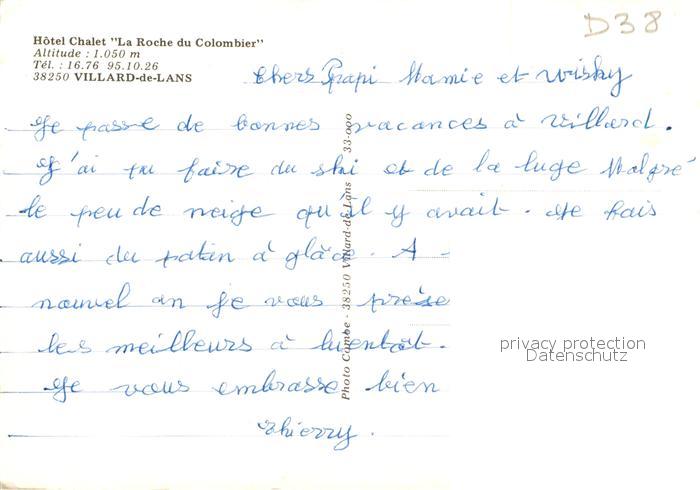 D38
Hôtel Chalet "La Roche du Colombier"
Altitude : 1.050 m
Tél. : 16.76 95.10.26
38250 VILLARD-de-LANS
Chers Papi Mamie et Wisky
Je passe de bonnes vacances à Villard.
J'ai pu faire du ski et de la luge Malgré
le peu de neige qu'il y avait. Je fais
aussi du patin à glâce. A
nouvel an je vous
les meilleurs à bientôt.
Je vous embrasse bien
Thierry.
Photo Combe - 38250 Villard-de-Lans 33-000
privacy protection
Datenschutz